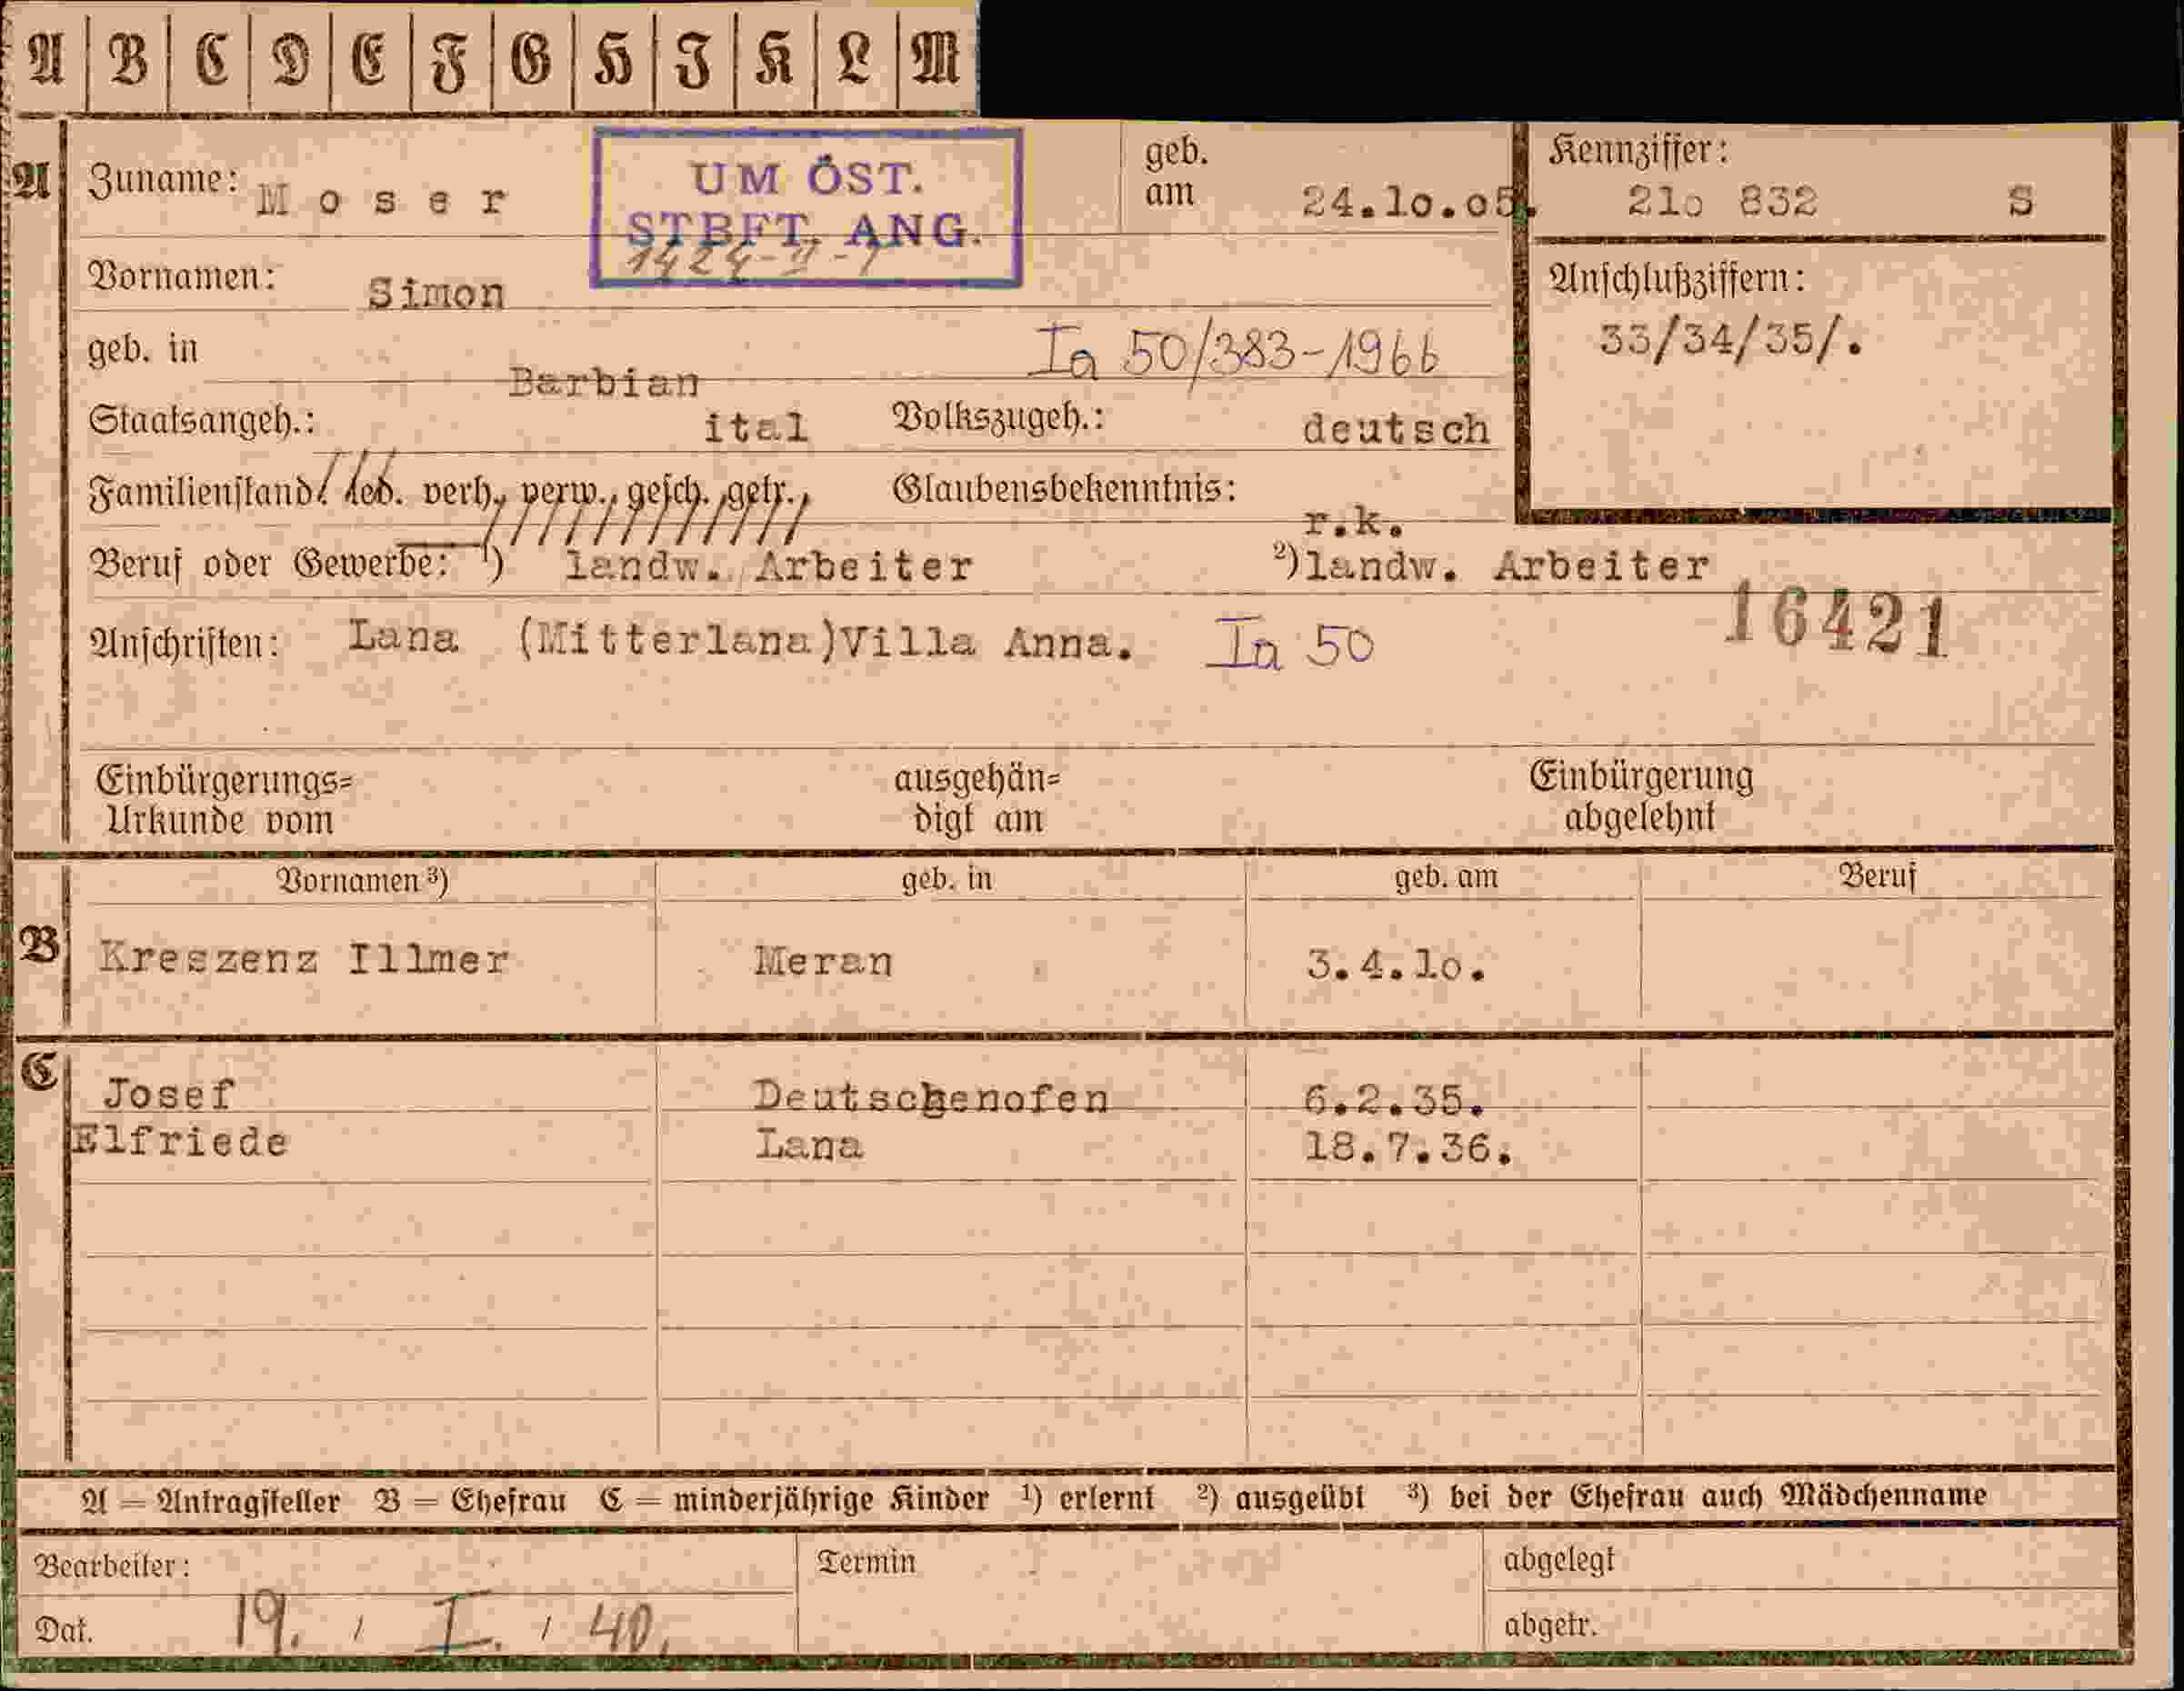 A B C D E F G H I K L M
A Zuname: Moser
UM ÖST.
STBFT. ANG.
1424-II-1
geb. am 24.10.05.
Kennziffer: 210 832 S
Vornamen: Simon
Anschlußziffern:
33/34/35/.
geb. in Barbian
Ia 50/383-1966
Staatsangeh.: ital Volkszugeh.: deutsch
Familienstand: led. verh., verw., gesch., getr., Glaubensbekenntnis: r.k.
Beruf oder Gewerbe: 1) landw. Arbeiter 2) landw. Arbeiter
16421
Anschriften: Lana (Mitterlana)Villa Anna. Ia 50
Einbürgerungs=
Urkunde vom
ausgehän=
digt am
Einbürgerung
abgelehnt
Vornamen 3) geb. in geb. am Beruf
B Kreszenz Illmer Meran 3.4.10.
C Josef Deutschenofen 6.2.35.
Elfriede Lana 18.7.36.
A = Antragsteller B = Ehefrau C = minderjährige Kinder 1) erlernt 2) ausgeübt 3) bei der Ehefrau auch Mädchenname
Bearbeiter: Termin abgelegt
Dat. 19. / I. / 40. abgetr.